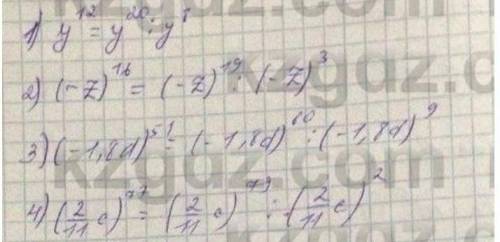 1) y¹² = y²⁰ : y⁸
2) (-z)¹⁶ = (-z)¹⁹ : (-z)³
3) (-1,8d)⁵¹ = (-1,8d)⁶⁰ : (-1,8d)⁹
4) (2/11 c)⁷⁷ = (2/11 c)⁷⁹ : (2/11 c)²